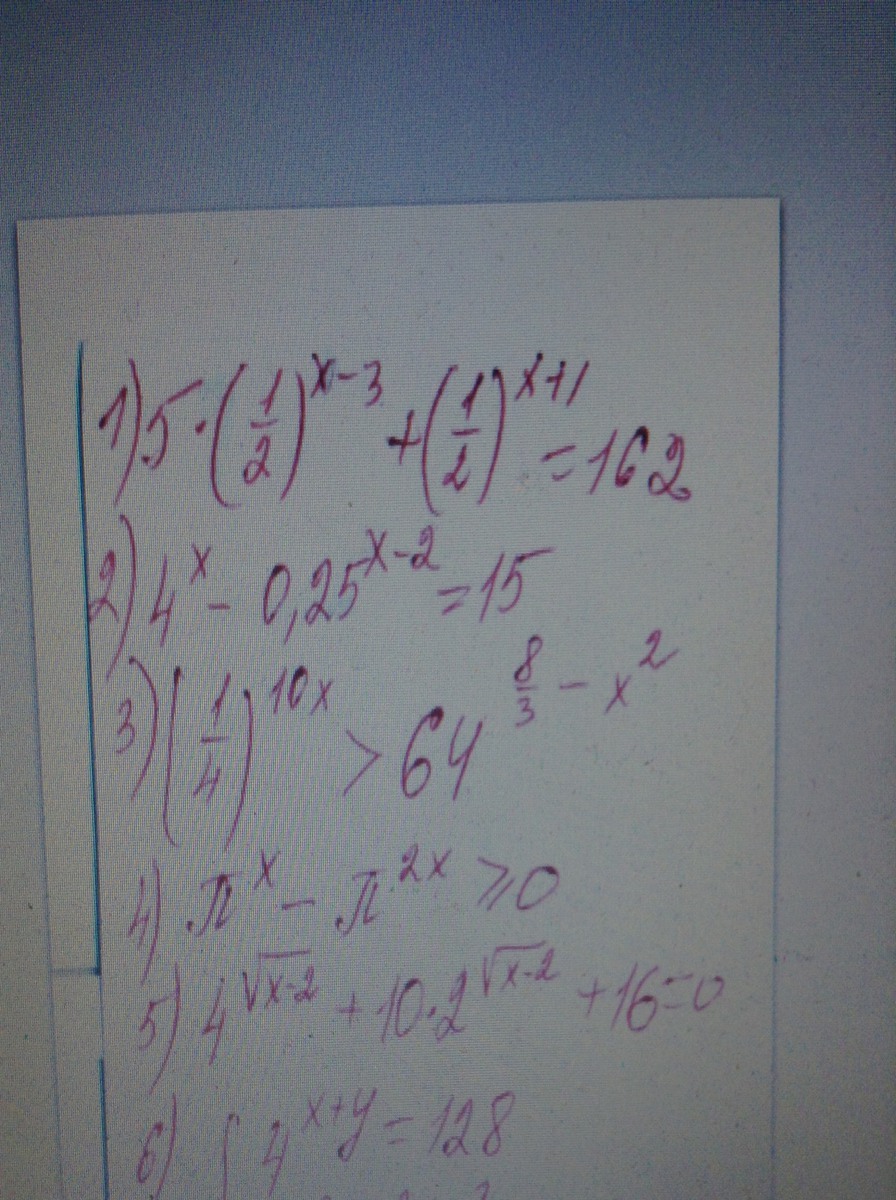 1) 5·(1/2)^(x-3) + (1/2)^(x+1) = 162
2) 4^x - 0,25^(x-2) = 15
3) (1/4)^(10x) > 64^(8/3 - x^2)
4) π^x - π^(2x) ⩾ 0
5) 4^(√(x-2)) + 10·2^(√(x-2)) + 16 = 0
6) { 4^(x+y) = 128